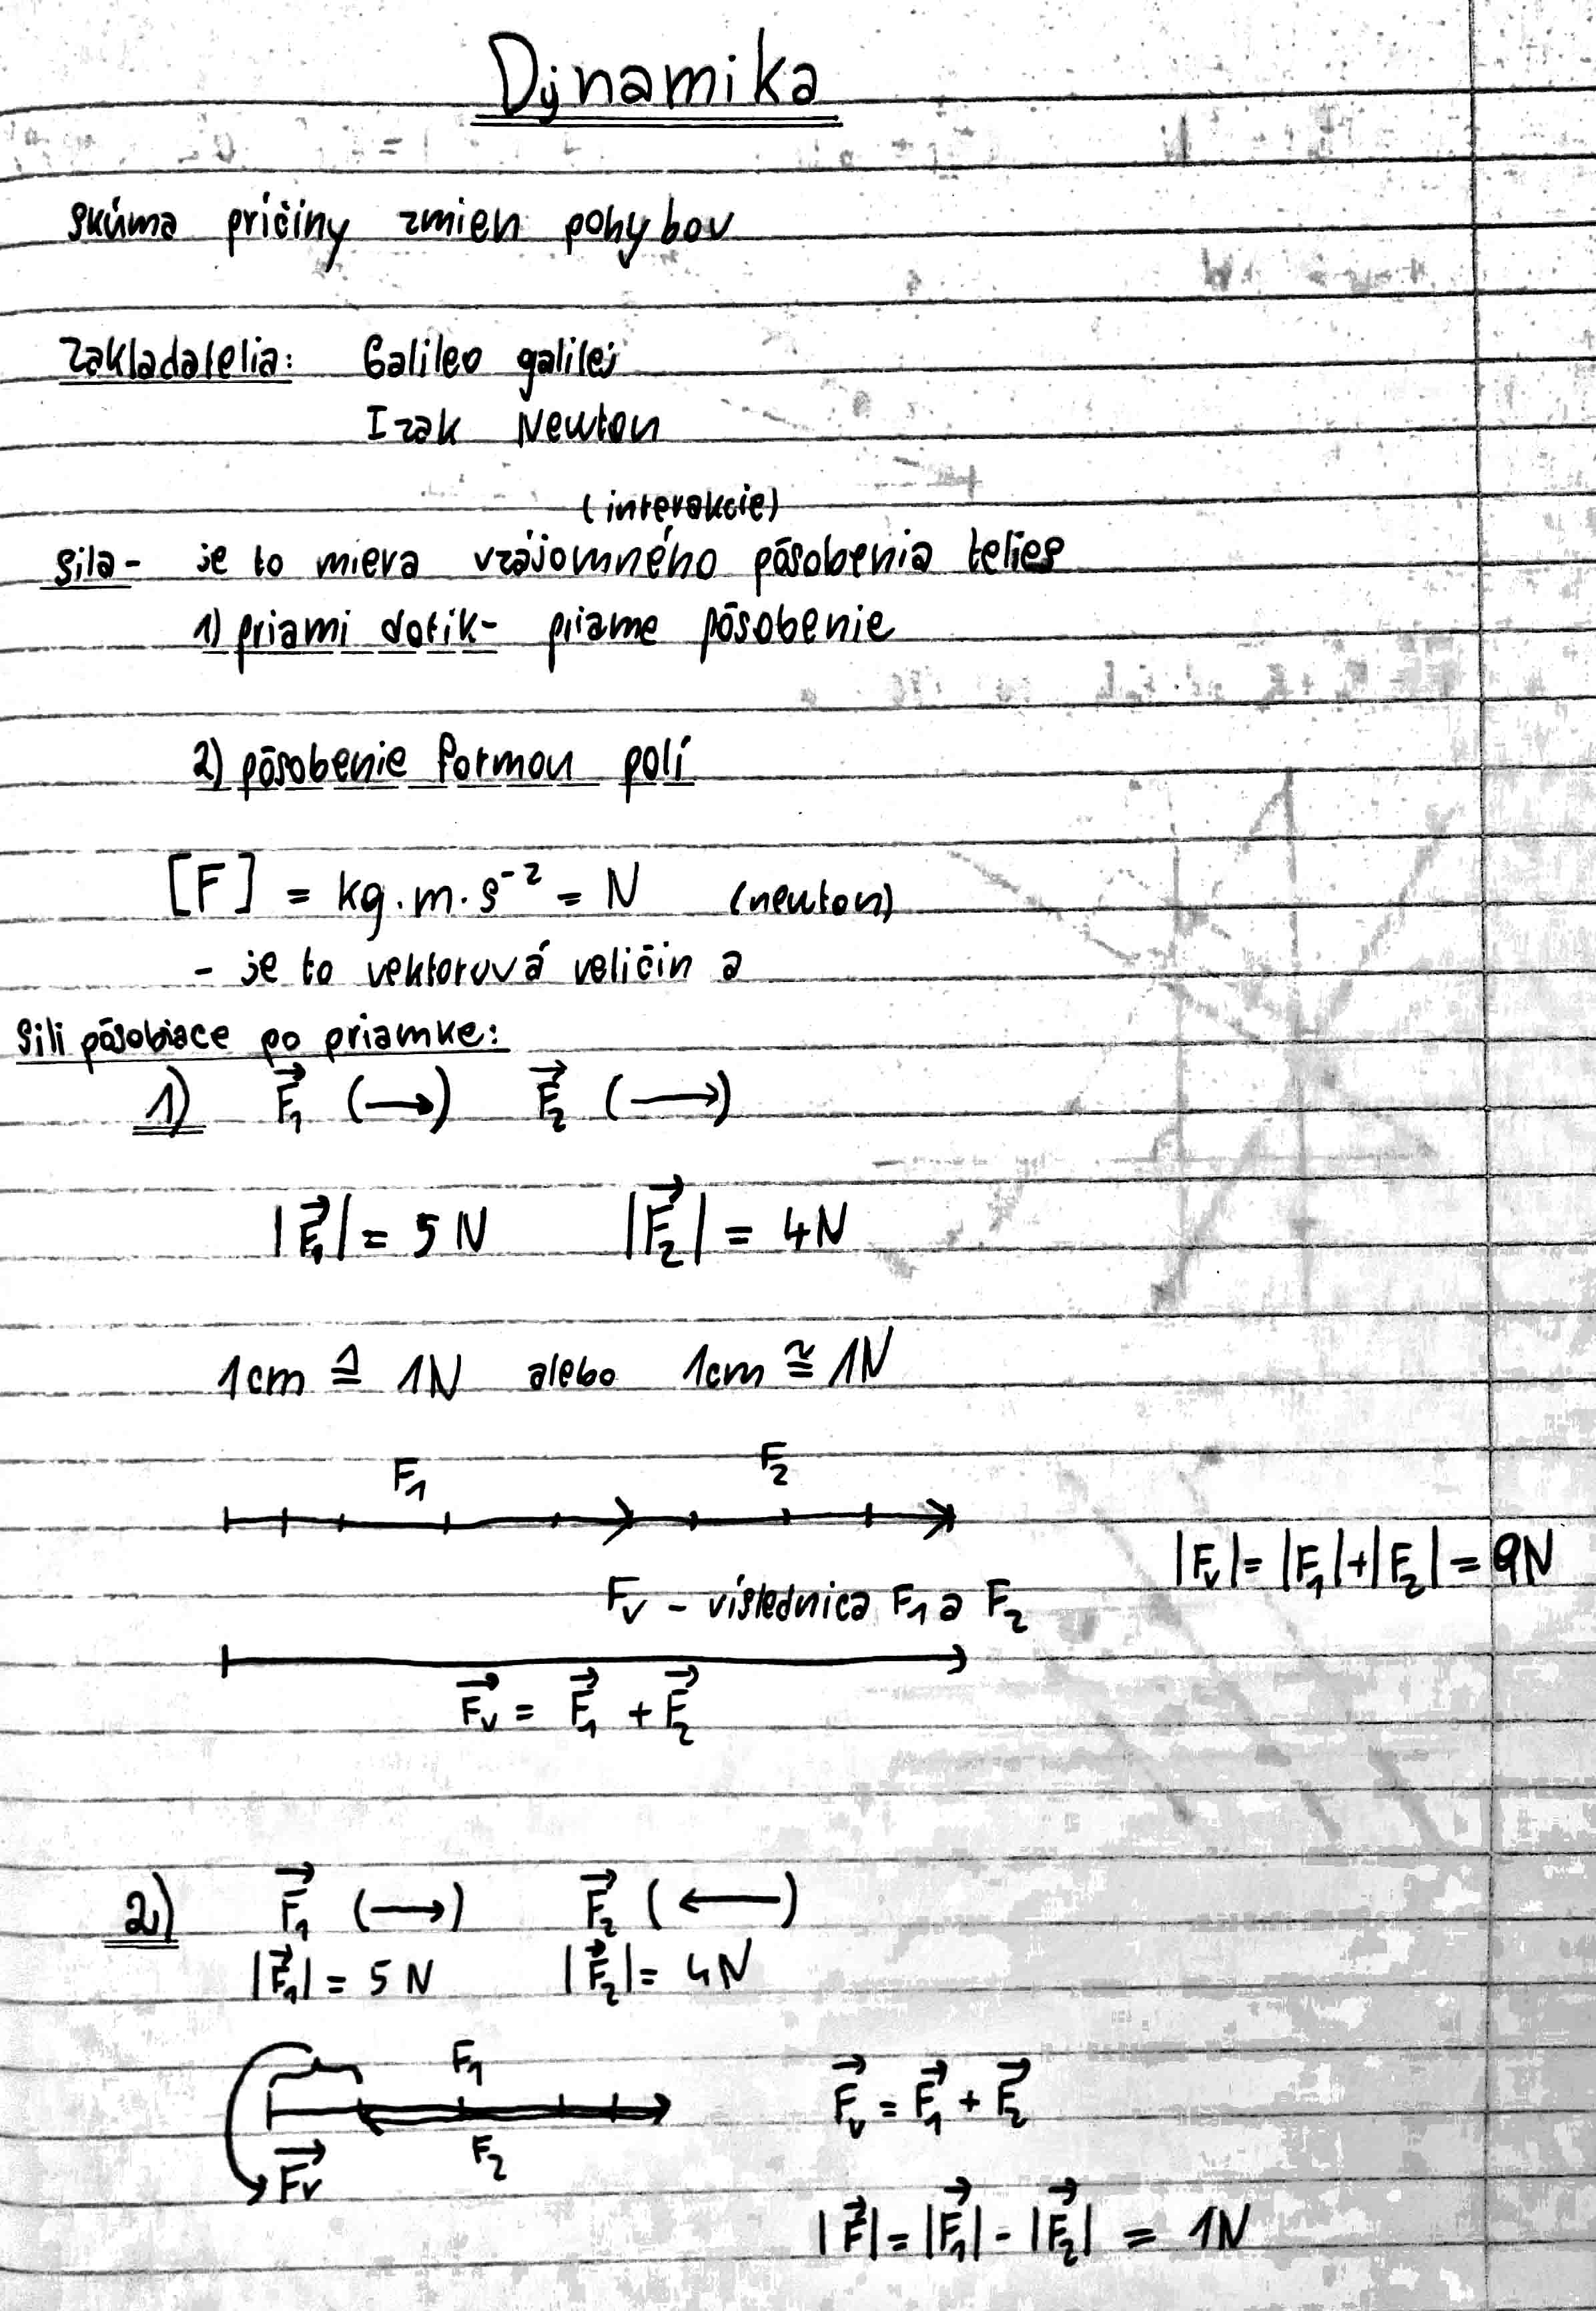 Dynamika
skúma príčiny zmien pohybov
Zakladatelia: Galileo galilej
Izak Newton
(interakcie)
sila - je to miera vzájomného pôsobenia telies
1) priami dotik - priame pôsobenie
2) pôsobenie formou polí
[F] = kg.m.s⁻² = N (newton)
- je to vektorová veličin a
Sili pôsobiace po priamke:
1) F⃗₁ (→) F⃗₂ (→)
|F⃗₁| = 5 N |F⃗₂| = 4N
1cm ≙ 1N alebo 1cm ≅ 1N
F₁ F₂
|Fᵥ| = |F₁|+|F₂| = 9N
Fᵥ - víslednica F₁ a F₂
F⃗ᵥ = F⃗₁ + F⃗₂
2) F⃗₁ (→) F⃗₂ (←)
|F⃗₁| = 5 N |F⃗₂| = 4N
F₁
F⃗ᵥ = F⃗₁ + F⃗₂
F₂
F⃗ᵥ
|F⃗| = |F⃗₁| - |F⃗₂| = 1N